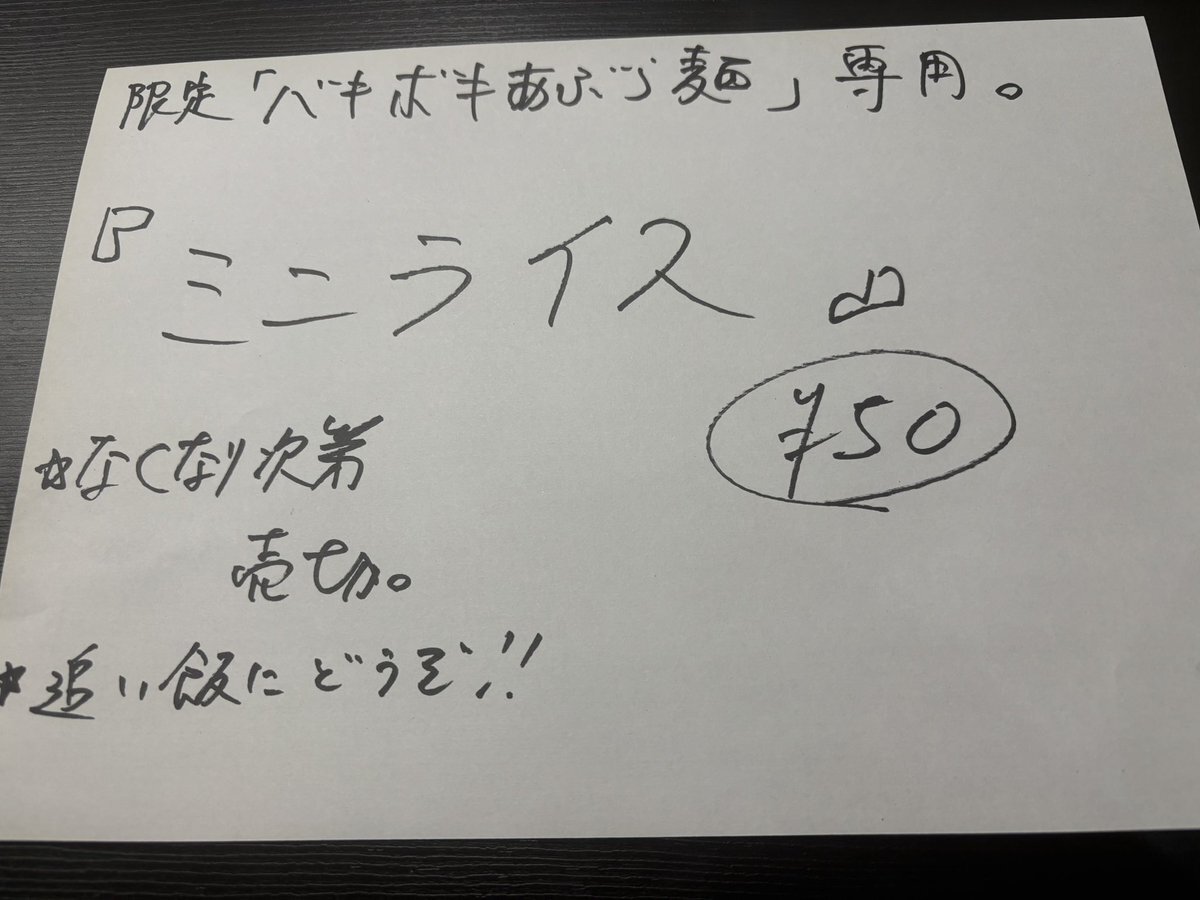 限定「バキボキあぶら麺」専用。
『ミニライス』
¥50
☆なくなり次第
売切。
☆追い飯にどうぞ!!